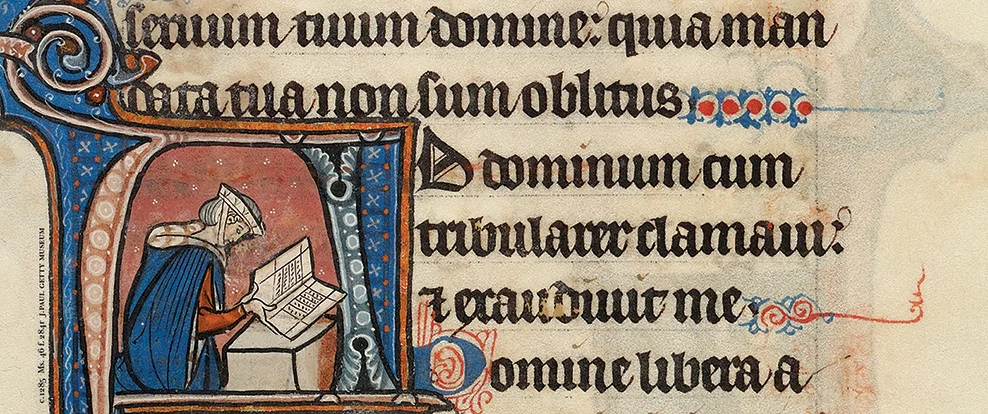 seruum tuum domine: quia man
data tua non sum oblitus
AD dominum cum
tribularer clamaui:
⁊ exaudiuit me
Domine libera a
c.1285 Ms. 46 f.284r J.PAUL GETTY MUSEUM